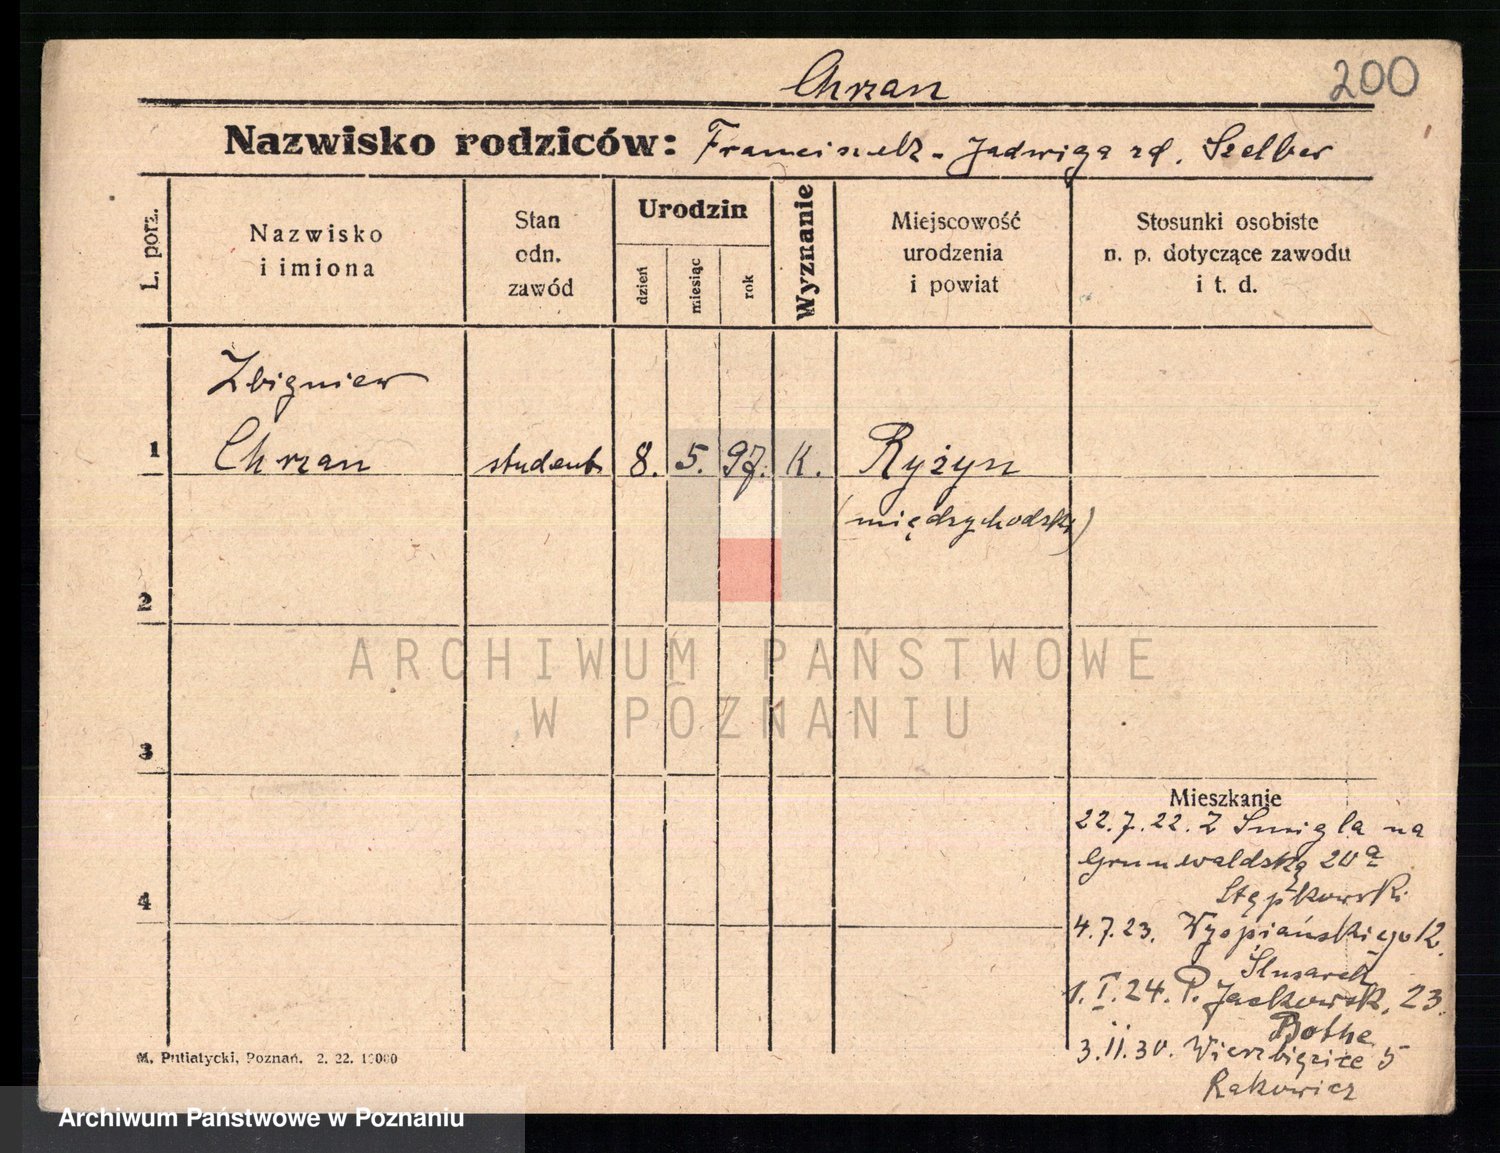 Chrzan
200
Nazwisko rodziców: Franciszek - Jadwiga zd. Szelber
L. porz.
Nazwisko
i imiona
Stan
odn.
zawód
Urodzin
dzień
miesiąc
rok
Wyznanie
Miejscowość
urodzenia
i powiat
Stosunki osobiste
n. p. dotyczące zawodu
i t. d.
Zbigniew
1 Chrzan student 8. 5. 97. K. Ryżyn
(międzychodzki)
2
ARCHIWUM PAŃSTWOWE
W POZNANIU
3
Mieszkanie
22.7.22. Z Śmigla na
Grunwaldską 20a
Stępkowski
4
4.7.23. Wyspiańskiego 12.
Ślusarek
1.I.24. P. Jackowsk. 23.
Bothe
3.II.30. Wierzbięcice 5
Rakowicz
M. Putiatycki, Poznań. 2. 22. 10000
Archiwum Państwowe w Poznaniu